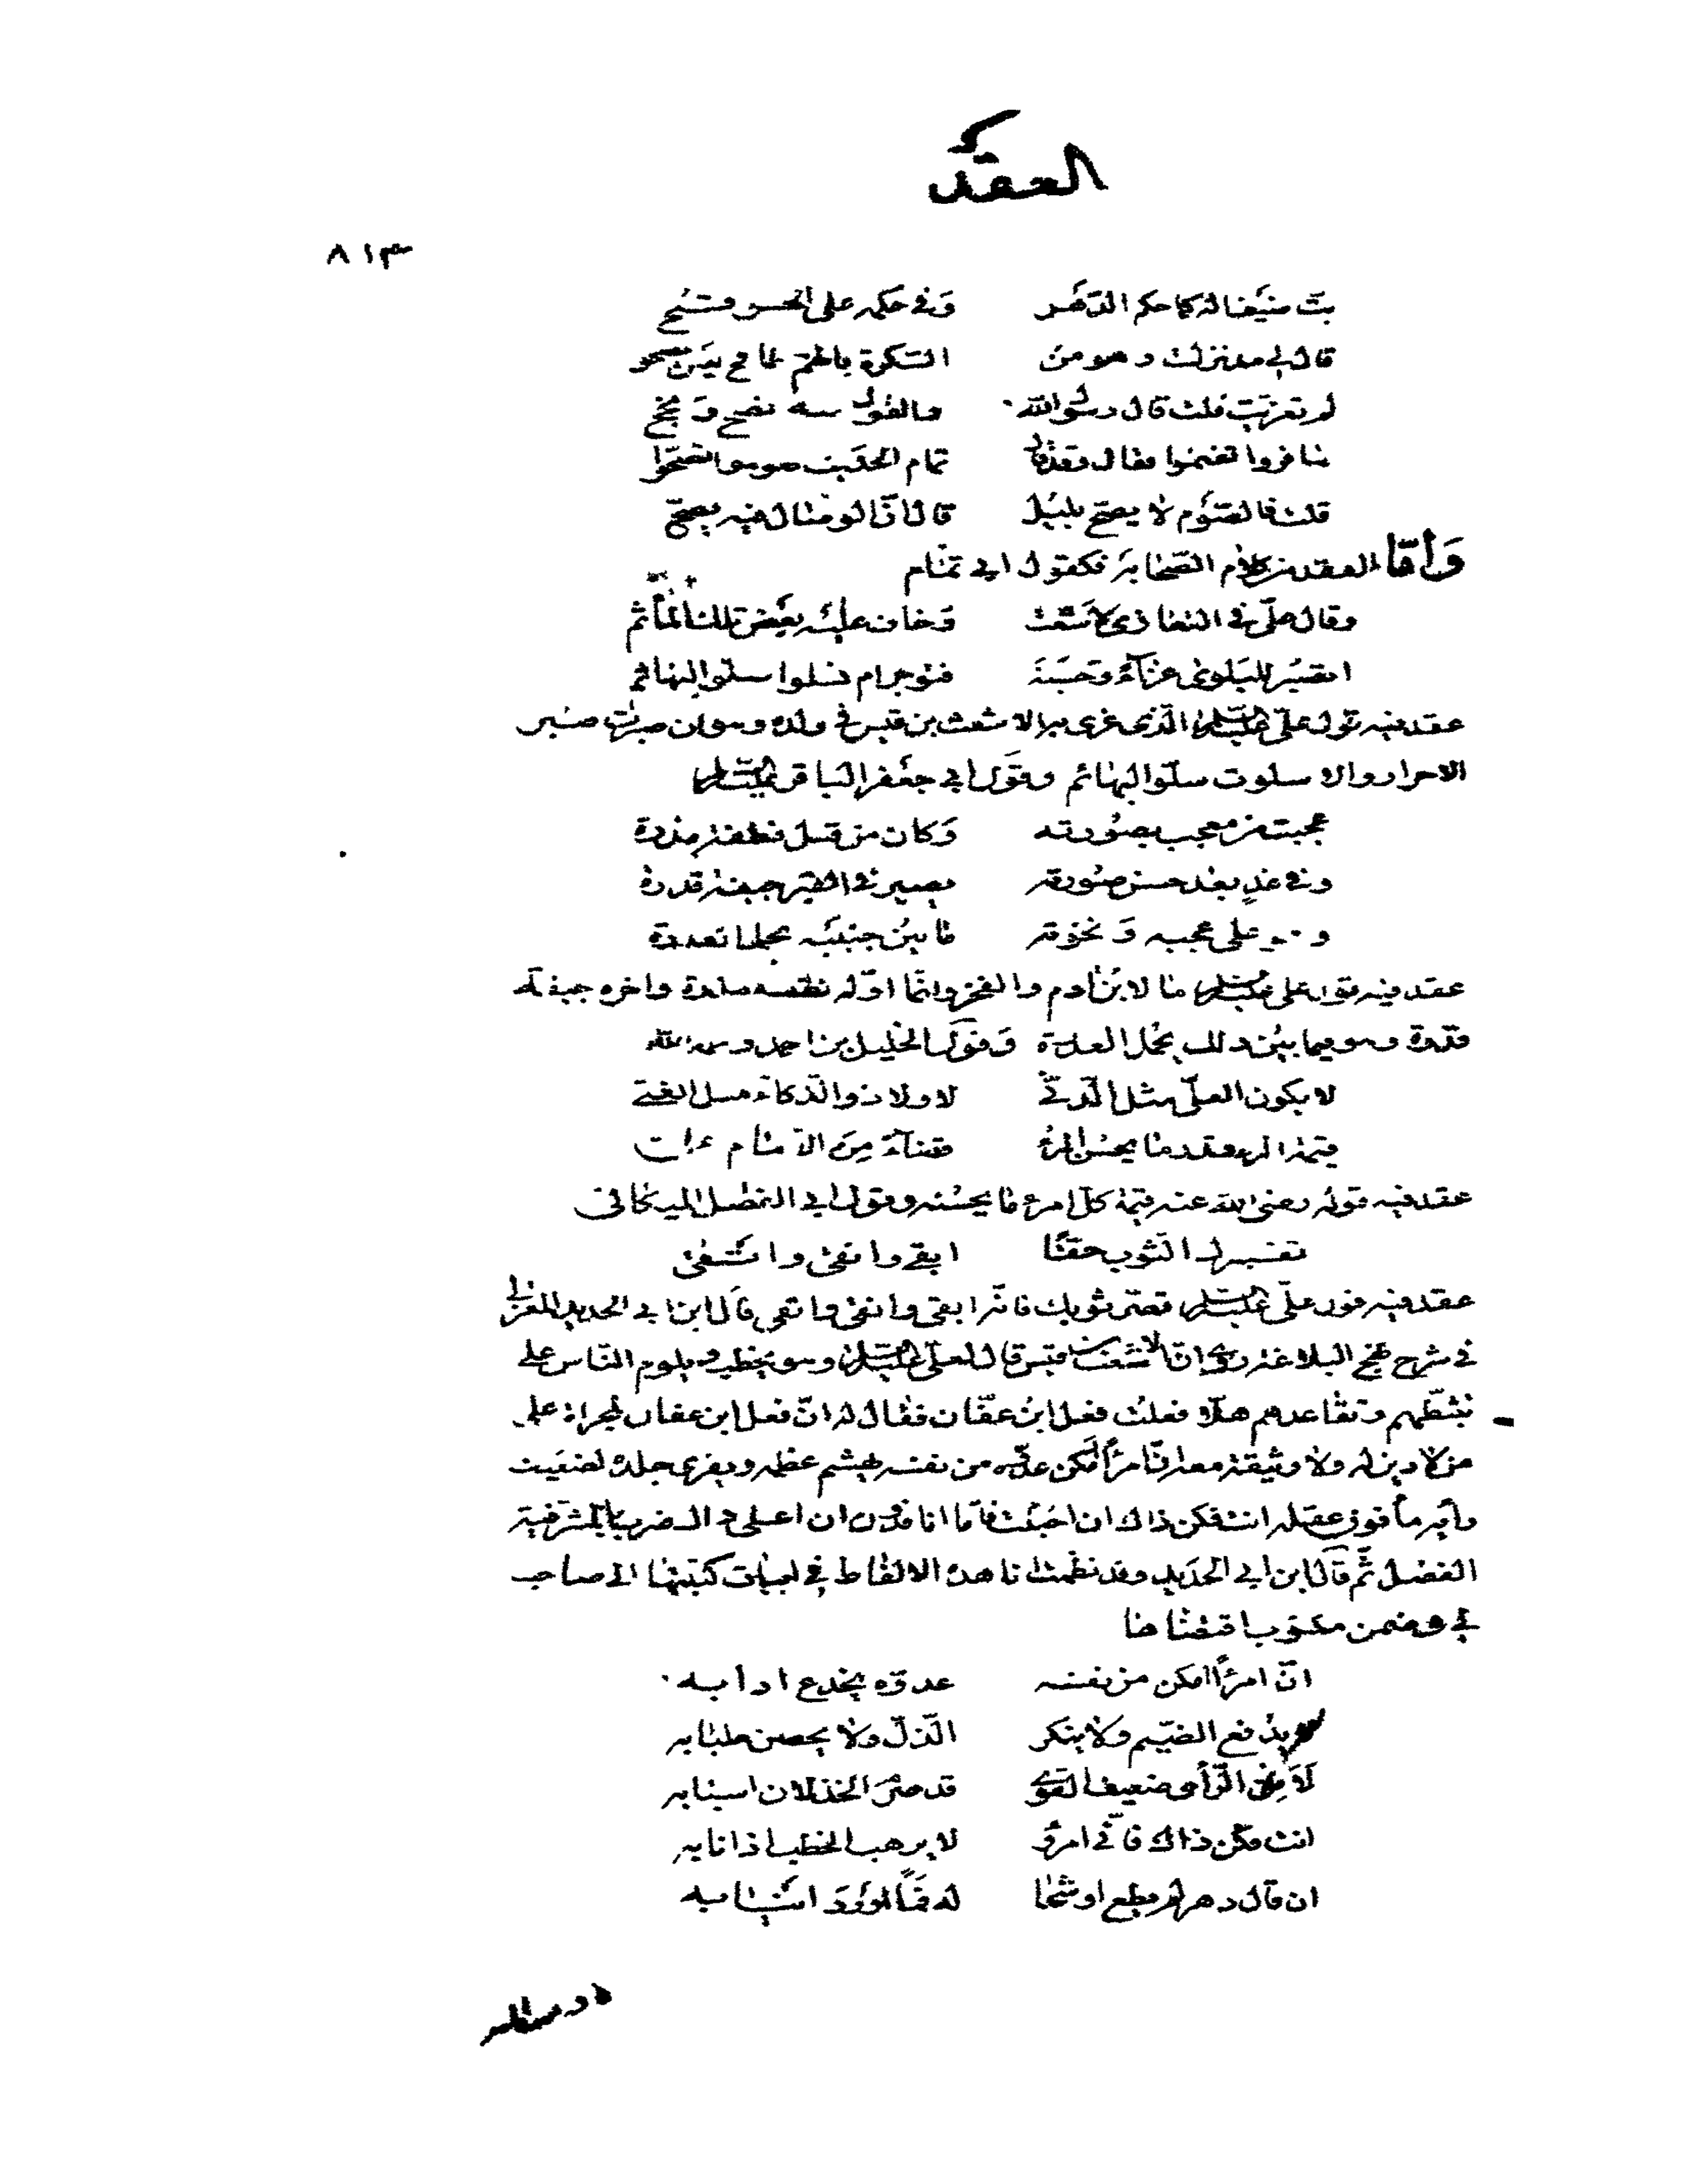 العقد
٨١٣
بتّ ضيفا له كما حكم الدهر وفي حكمه على الحر قبح
قال لي مذ نزلت وهو من السكرة بالهم طافح ليس يصحو
لم تغربت قلت قال رسول الله والقول منه نصح ونجح
سافروا تغنموا فقال وقد قال تمام الحديث صوموا تصحّوا
قلت فالصوم لا يصح بليل قال انّ الوصال فيه يصحّ
وأمّا العقد من كلام الصحابة فكقول ابي تمّام
وقال عليّ في التعازي لاشعث وخاف عليه بعض تلك المآثم
اتصبر للبلوى عزآء وحسبة فتوجرام تسلوا سلوّ البهائم
عقد فيه قول عليّ عليه السلام الذي عزى به الاشعث بن قيس في ولده وهو ان صبرت صبر
الاحرار والا سلوت سلوّ البهائم وقول ابي جعفر الباقر عليه السلام
عجبت من معجب بصورته وكان من قبل نطفة مذرة
وفي غد بعد حسن صورته يصير في القبر جيفة قذرة
وهو على عجبه ونخوته ما بين جنبيه يحمل العذرة
عقد فيه قول علي عليه السلام ما لابن ادم والفخر وانما اوّله نطفة مذرة واخره جيفة
قذرة وهو فيما بين ذلك يحمل العذرة وقول الخليل بن احمد رحمه الله
لا يكون العليّ مثل الدنيّ لا ولا ذو الذكاء مثل الغبي
قيمة المرء قدر ما يحسن المرء قضاء من الامام علي
عقد فيه قوله رضي الله عنه قيمة كل امرء ما يحسنه وقول ابي الفضل الميكالي
تقصيرك الثوب حقّا ابقى وانقى واتقى
عقد فيه قول عليّ عليه السلام قصّر ثوبك فانّه ابقى وانقى واتقى قال ابن ابي الحديد المعتزلي
في شرح نهج البلاغة روي انّ الاشعث بن قيس قال لعليّ عليه السلام وهو يخطب ويلوم الناس على
تثبّطهم وتقاعدهم هلّا فعلت فعل ابن عفّان فقال له انّ فعل ابن عفان لمخزاة على
من لا دين له ولا وثيقة معه ان امرأ امكن عدوّه من نفسه يهشم عظمه ويفري جلده لضعيف
رأيه مأفون عقله انت فكن ذاك ان احببت فامّا انا فدون ان اعطى ذاك ضرب بالمشرفية
الفصل ثمّ قال ابن ابي الحديد وقد نظمت انا هذه الالفاظ في ابيات كتبتها الى صاحب
لي في ضمن مكتوب اقتضاها
انّ امرءا امكن من نفسه عدوّه يجدع ادابه
لا يدفع الضيم ولا ينكر الذلّ ولا يحصن جلبابه
لفائل الرأي ضعيف القوى قد صرم الخذلان اسبابه
انت فكن ذاك فانّي امرؤ لا يرهب الخطب اذا نابه
ان قال دهر لم يطع او شحا له فماً ادرد انيابه